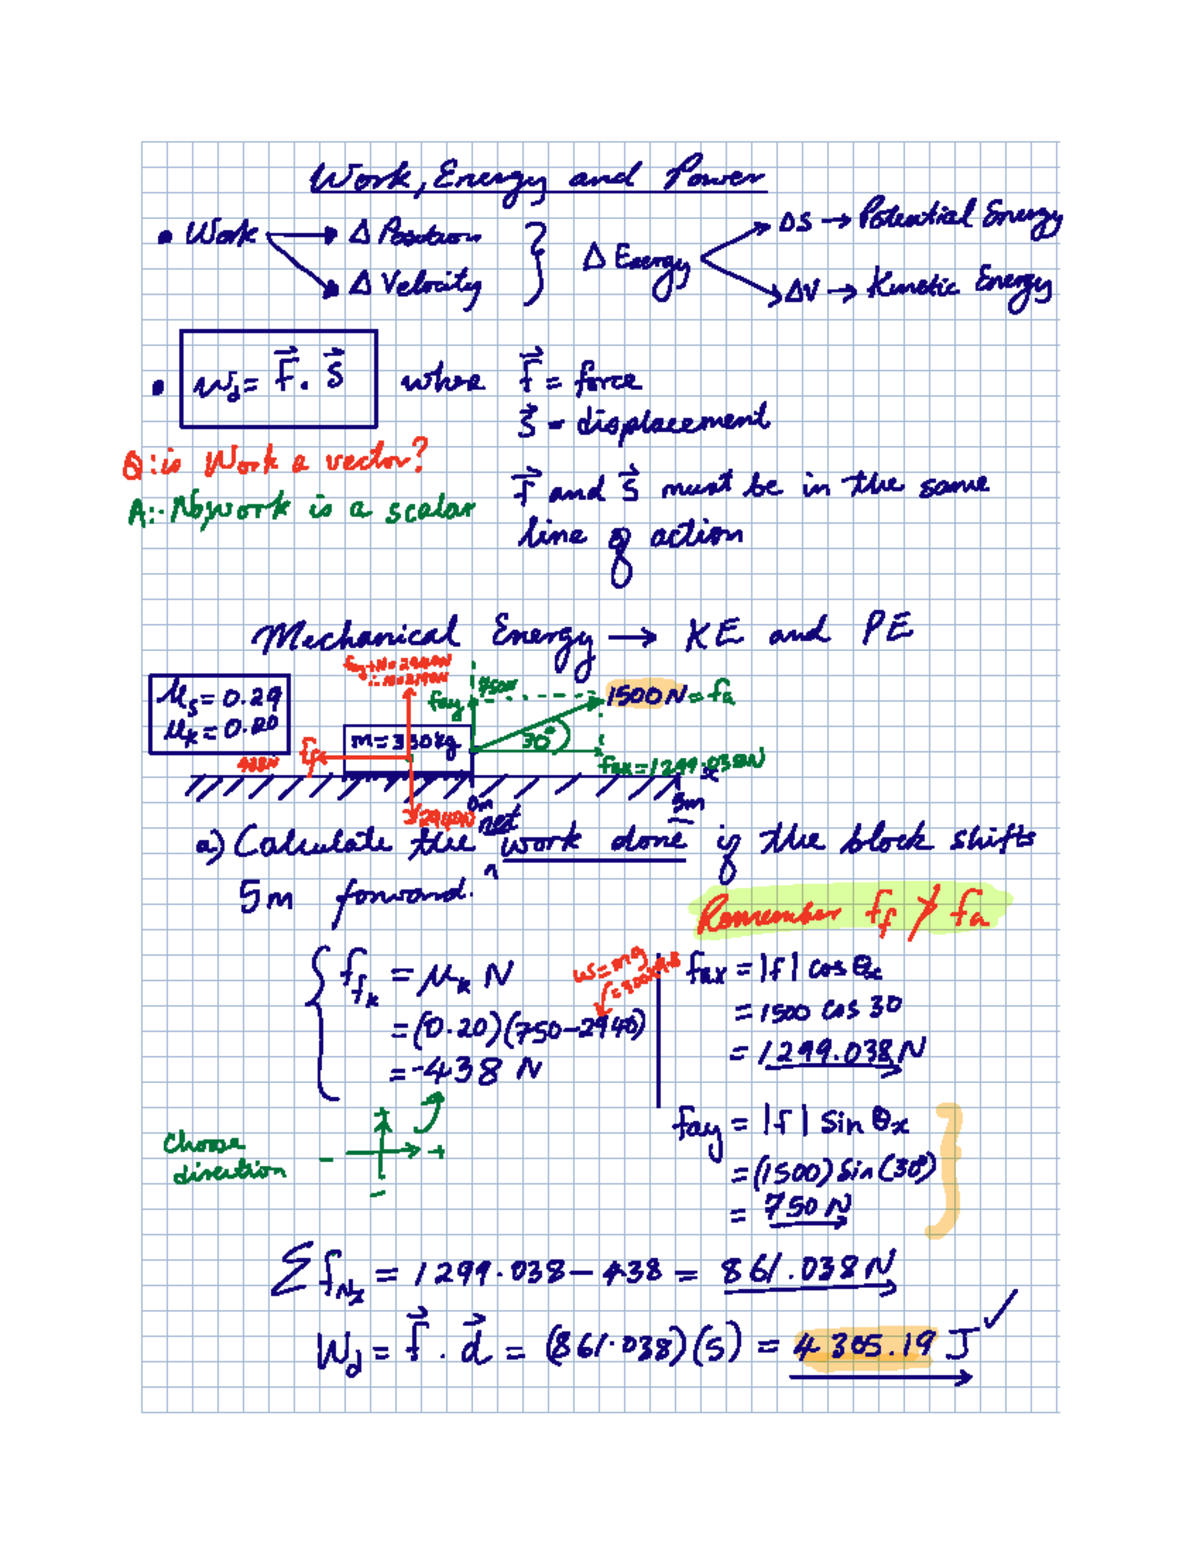 Work, Energy and Power
• Work → Δ Position
→ Δ Velocity
} Δ Energy → ΔS → Potential Energy
→ ΔV → Kinetic Energy
• Wd = F⃗ . S⃗ where f⃗ = force
S⃗ = displacement
Q: is Work a vector?
A:- No, work is a scalar
f⃗ and S⃗ must be in the same
line of action
Mechanical Energy → KE and PE
μs = 0.29
μk = 0.20
fay+N=2940N
∴ N=2190N
fay
750N
1500N = fa
m=330kg
30°
ff
438N
fax=1299.038N
x
2940N
0m
5m
a) Calculate the net work done if the block shifts
5m forward.
Remember ff ≯ fa
ffk = μk N
= (0.20)(750-2940)
= -438 N
w=mg
=300x9.8
fax = |f| cos θx
= 1500 cos 30
= 1299.038N
Choose
direction
+
-
+
-
fay = |f| sin θx
= (1500) sin(30°)
= 750N
Σ fNx = 1299.038 - 438 = 861.038N
Wd = f⃗ . d⃗ = (861.038)(5) = 4305.19 J ✓